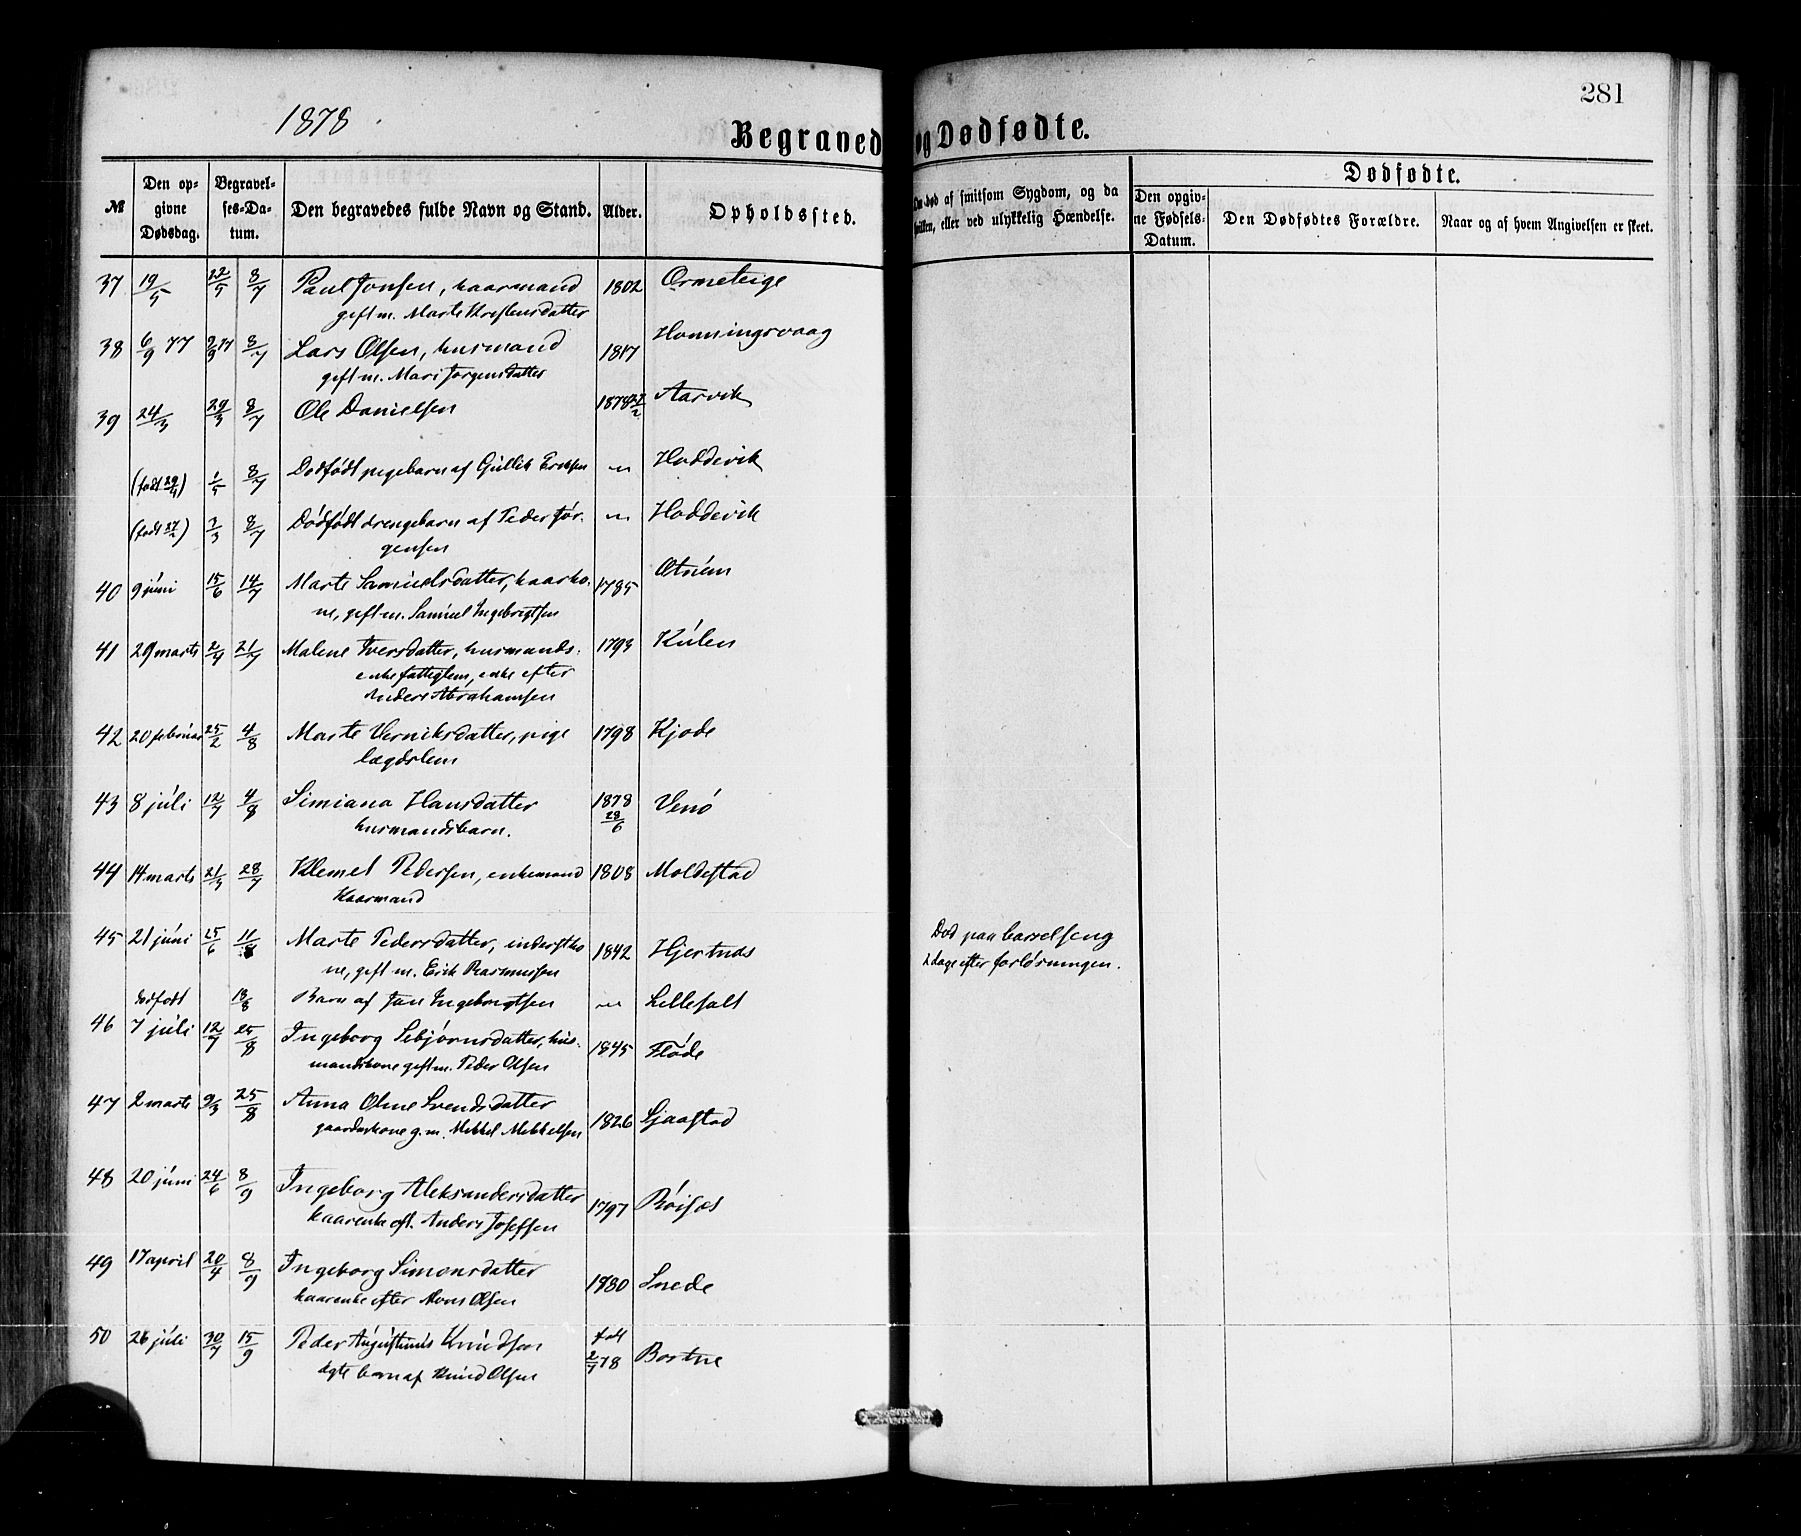 281
1878
Begravede og Dødfødte.
№
Den opgivne Dødsdag.
Begravelses-Datum.
Den begravedes fulde Navn og Stand.
Alder.
Opholdssted.
af smitsom Sygdom, og da hvilken, eller ved ulykkelig Hændelse.
Dødfødte.
Den opgivne Fødsels-Datum.
Den Dødfødtes Forældre.
Naar og af hvem Angivelsen er skeet.
37 19/5 22/5 8/7 Paul Jonsen, kaarmand 1802 Ormeteige
gift m. Marte Kristensdatter
38 6/9 77 9/9 77 8/7 Lars Olsen, husmand 1817 Honningsvaag
gift m. Mari Jørgensdatter
39 24/3 29/3 8/7 Ole Danielsen 1878 27/2 Aarvik
(født 29/4) 1/5 8/7 Dødfødt pigebarn af Gullik Eriksen — Hoddevik
(født 27/2) 3/3 8/7 Dødfødt drengebarn af Peder Jør- — Hoddevik
gensen
40 9 juni 15/6 14/7 Marte Samuelsdatter, kaarko- 1785 Otnem
ne, gift m. Samuel Ingebrigtsen
41 29 marts 2/4 21/7 Malene Iversdatter, husmands- 1793 Kulen
enke fattiglem, enke efter
Anders Abrahamsen
42 20 februar 25/2 4/8 Marte Verniksdatter, pige 1798 Kjøde
lægdslem
43 8 juli 12/7 4/8 Simiana Hansdatter 1878 28/6 Venø
husmandsbarn.
44 14 marts 21/3 28/7 Klemet Pedersen, enkemand 1808 Moldestad
Kaarmand
45 21 juni 25/6 11/8 Marte Pedersdatter, inderstko- 1842 Hjertnæs Død paa barselseng
ne, gift m. Erik Rasmussen 2 dage efter forløsningen.
dødfødt 18/8 Barn af Jan Ingebrigtsen — Lillefalt
46 7 juli 12/7 25/8 Ingeborg Sebjørnsdatter, hus- 1845 Fløde
mandskone gift m. Peder Olsen
47 2 marts 9/3 25/8 Anna Oline Svendsdatter 1826 Sjaastad
gaardskone g. m. Mikkel Mikkelsen
48 20 juni 24/6 8/9 Ingeborg Aleksandersdatter 1797 Røisæt
kaarenke eft. Anders Josefsen
49 17 april 20/4 8/9 Ingeborg Simonsdatter 1780 Snede
kaarenke efter Mons Olsen
50 26 juli 30/7 15/9 Peder Augustinus Knudsen født 2/7 78 Bortne
ægte barn af Knud Olsen